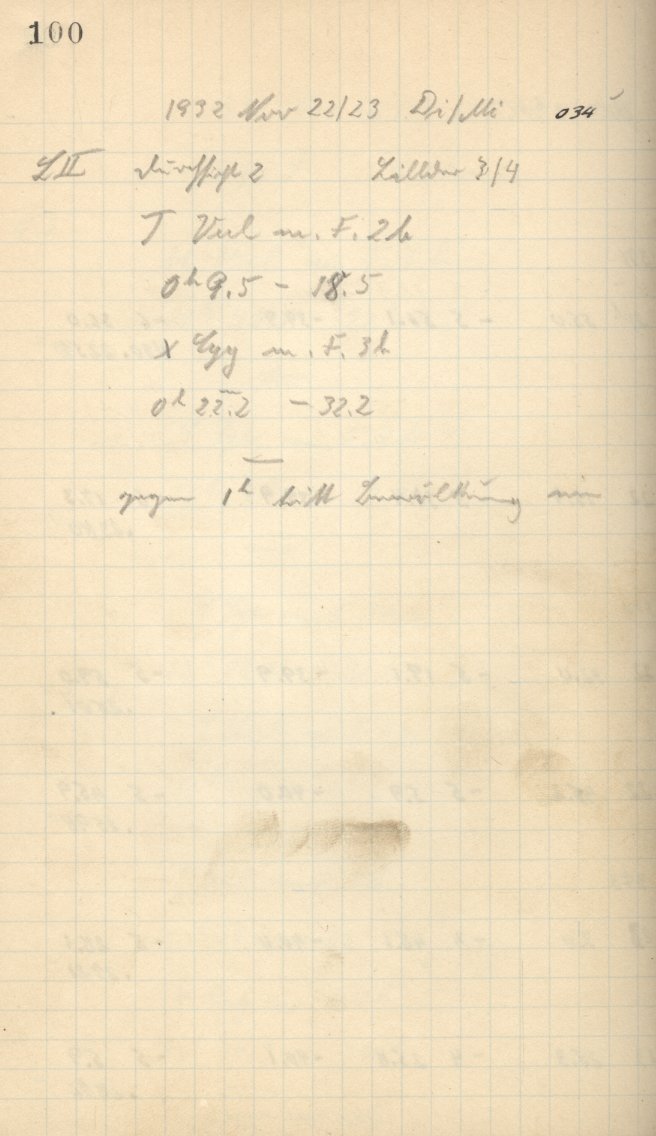 100
1932 Nov 22/23 Di/Mi 034
L II Durchsicht 2 Bilder 3/4
T Vul m. F. 2h
0h 9.5 – 18.5
X Cyg m. F. 3h
0h 22.2 – 32.2
gegen 1h tritt Bewölkung ein